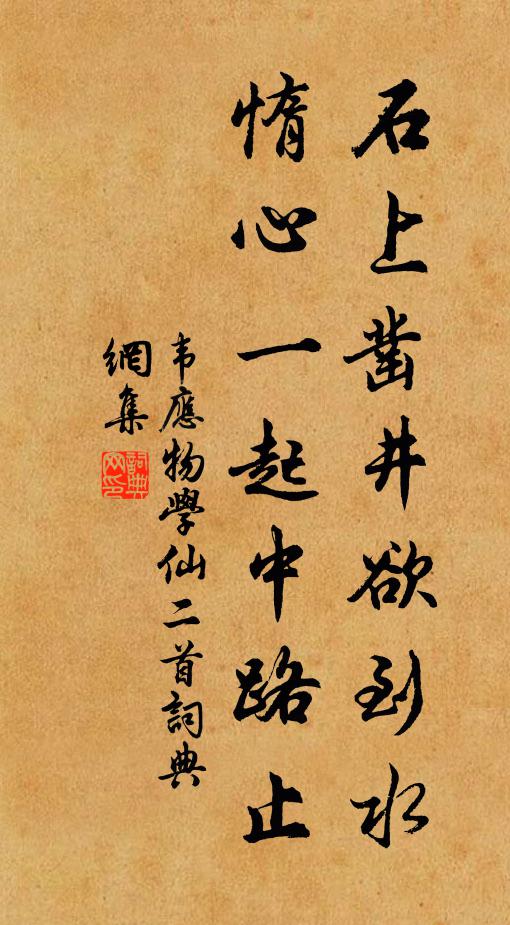 石上凿井欲到水
惰心一起中路止
韦應物學仙二首詞典
網集
詞典
网印